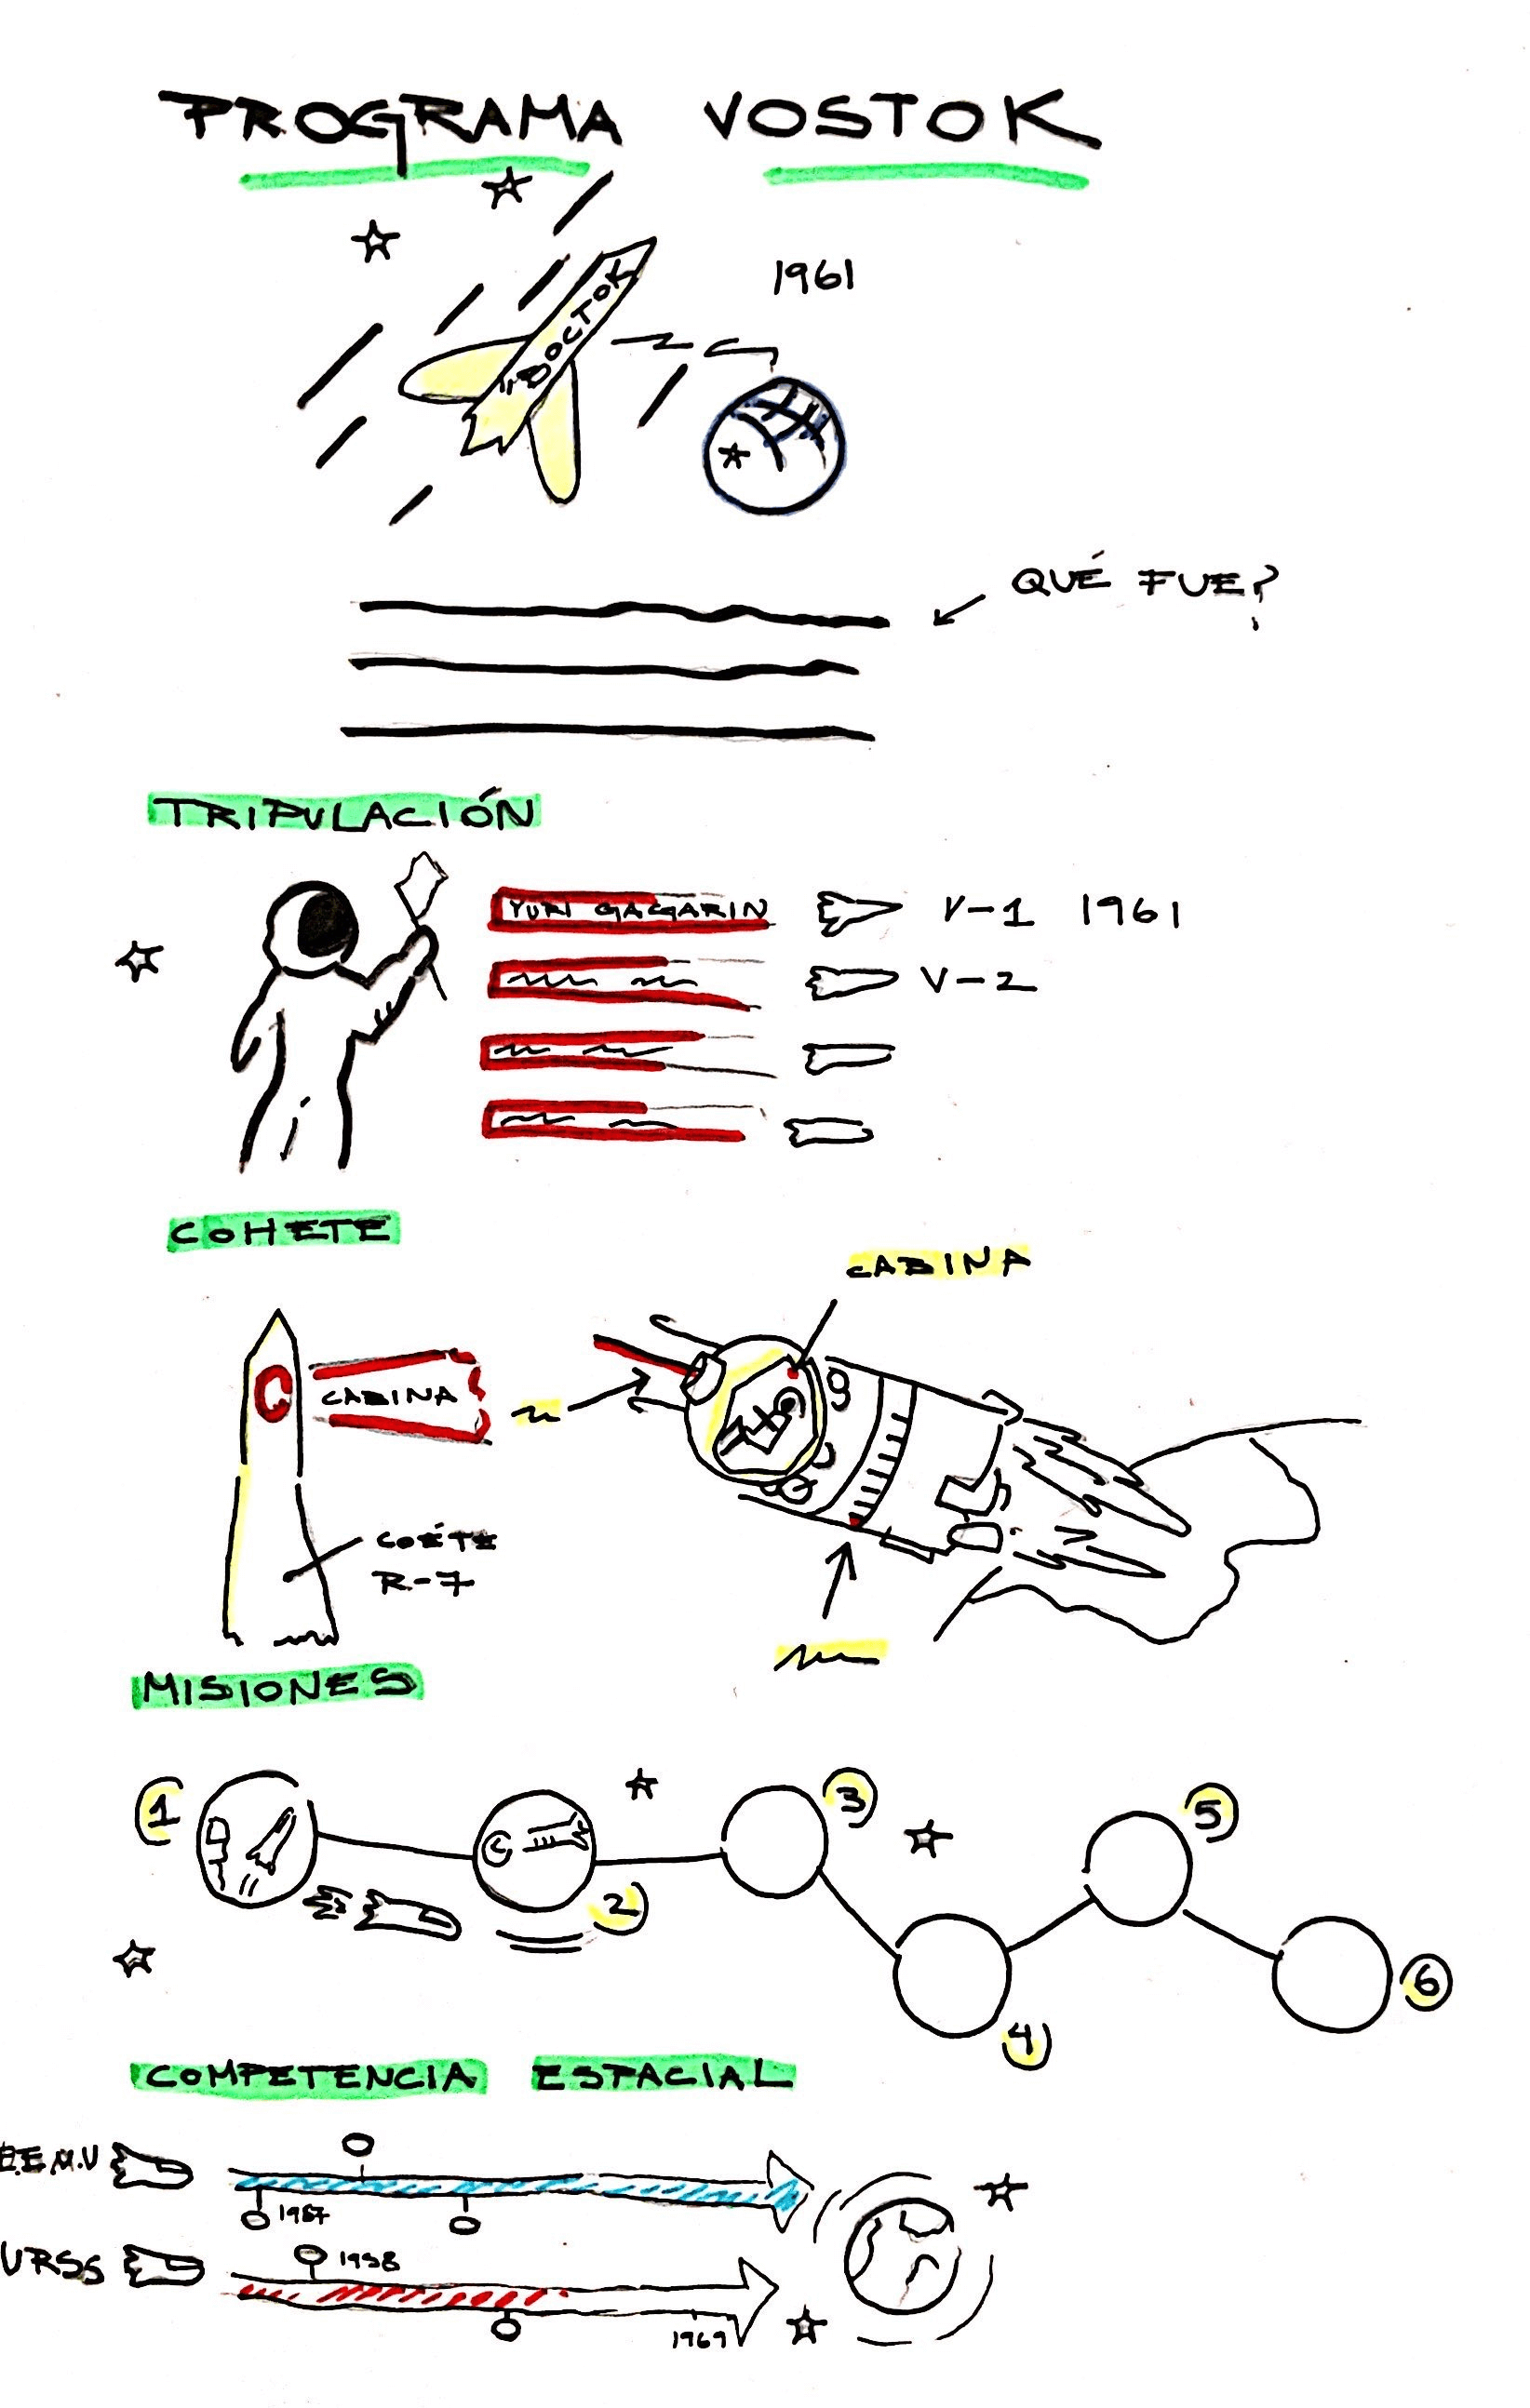 PROGRAMA VOSTOK
1961
ВОСТОК
QUÉ FUE?
TRIPULACIÓN
YURI GAGARIN V-1 1961
V-2
COHETE
CABINA
CABINA
COÉTE
R-7
MISIONES
1
2
3
4
5
6
COMPETENCIA ESPACIAL
E.E.M.U
1957
URSS
1958
1969